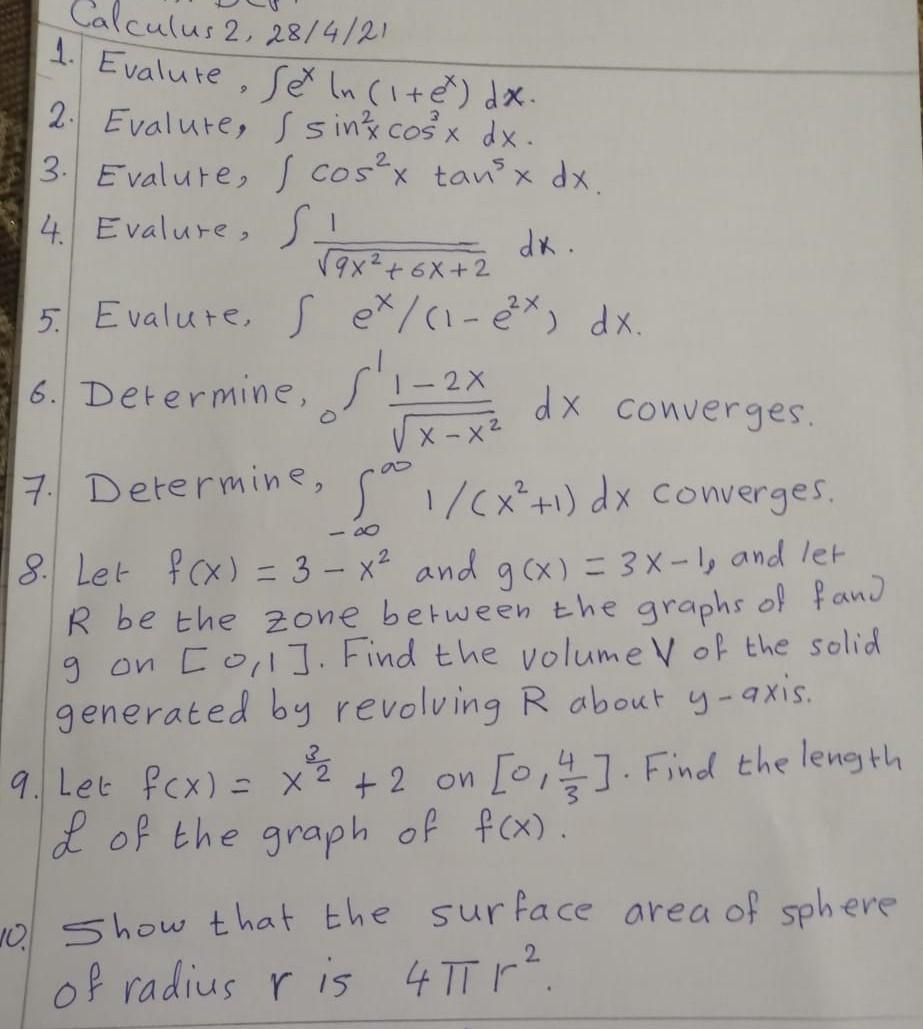 Calculus 2, 28/4/21
1. Evalute, ∫e^x ln(1+e^x) dx.
2. Evalute, ∫ sin²x cos³x dx.
3. Evalute, ∫ cos²x tan⁵x dx.
4. Evalute, ∫ 1/√(9x²+6x+2) dx.
5. Evalute, ∫ e^x/(1-e^2x) dx.
6. Determine, ₀∫¹ (1-2x)/√(x-x²) dx converges.
7. Determine, ∫_{-∞}^{∞} 1/(x²+1) dx converges.
8. Let f(x) = 3-x² and g(x) = 3x-1, and let
R be the zone between the graphs of f and
g on [0,1]. Find the volume V of the solid
generated by revolving R about y-axis.
9. Let f(x) = x^{3/2} + 2 on [0, 4/3]. Find the length
L of the graph of f(x).
10. Show that the surface area of sphere
of radius r is 4πr².